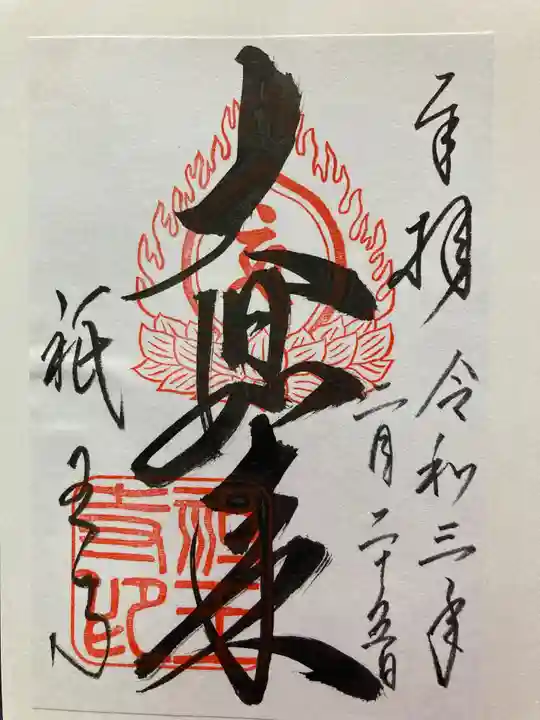 奉拝 令和三年
二月二十五日
大日如来
祇王寺
祇王
寺印